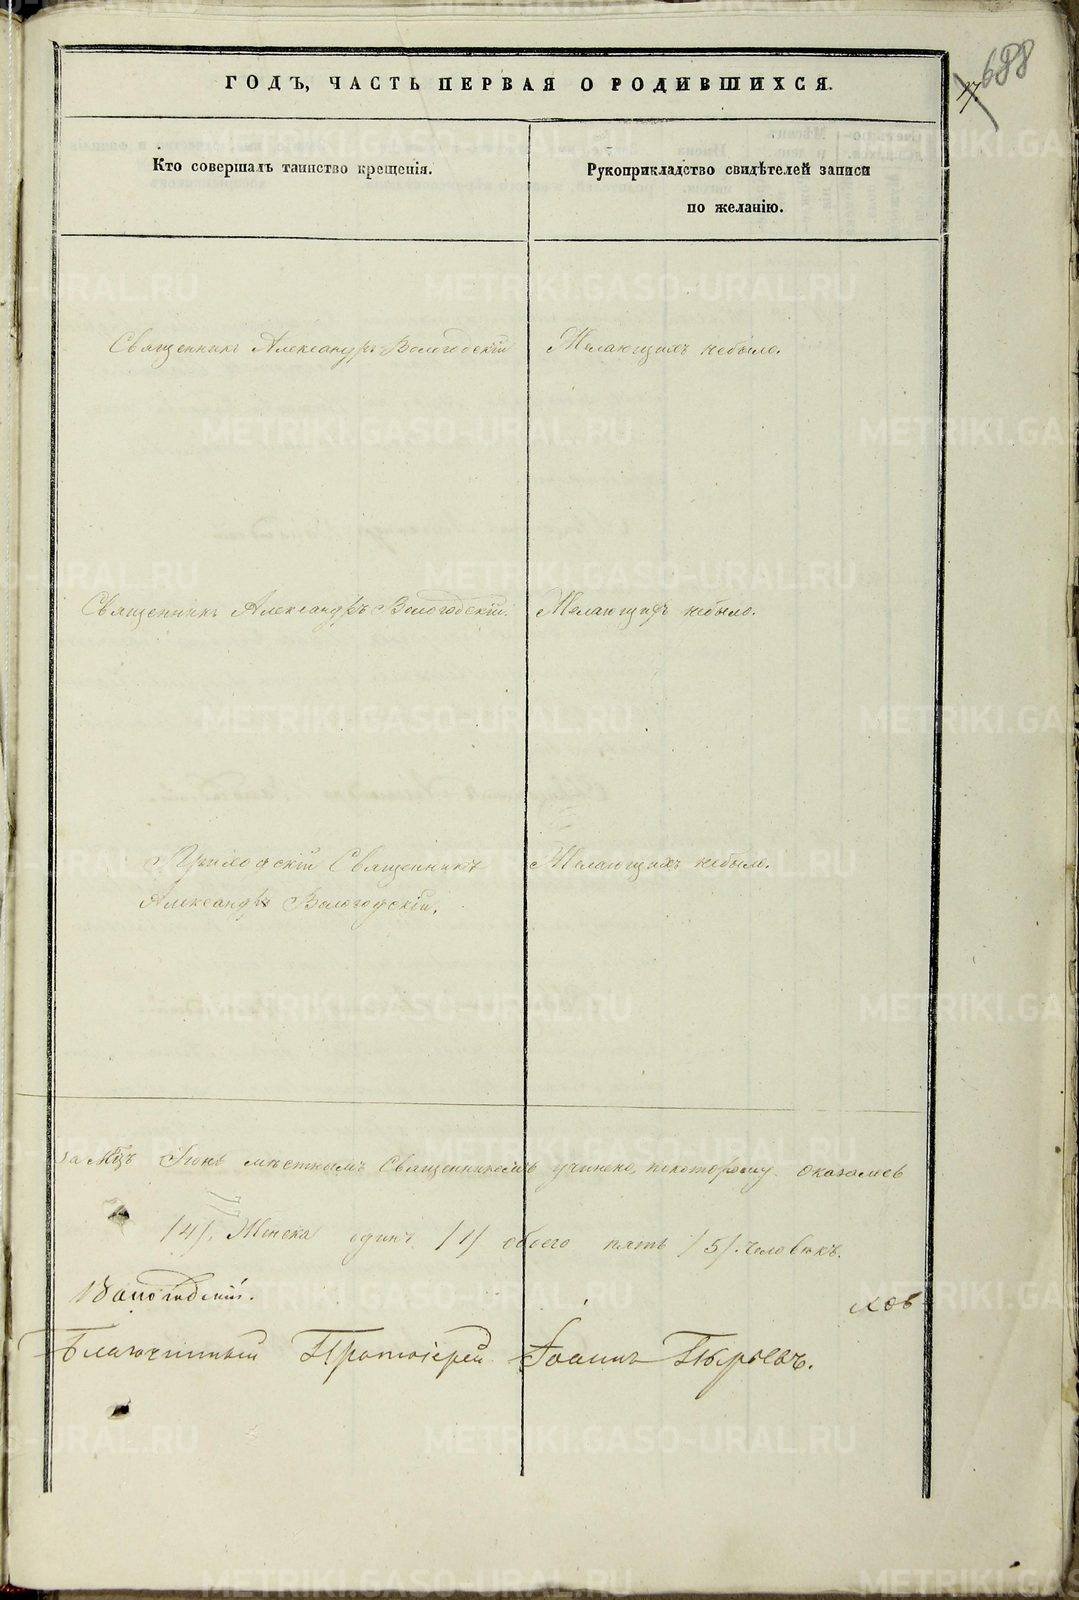 688
17.
ГОДЪ, ЧАСТЬ ПЕРВАЯ О РОДИВШИХСЯ.
Кто совершалъ таинство крещенія.
Рукоприкладство свидѣтелей записи
по желанію.
Священникъ Александръ Вологодскій
Желающихъ небыло.
Священникъ Александръ Вологодскій.
Желающихъ небыло.
Приходскій Священникъ
Александръ Вологодскій.
Желающихъ небыло.
за Мцъ Іюнь мѣстнымъ Священникомъ учинено, покоторому оказалось
/4/. Женска одинъ /1/ обоего пять /5/. человѣкъ.
Вологодскій.
ховъ
Благочинный Протоіерей Іоаннъ Пырьевъ.
METRIKI.GASO-URAL.RU